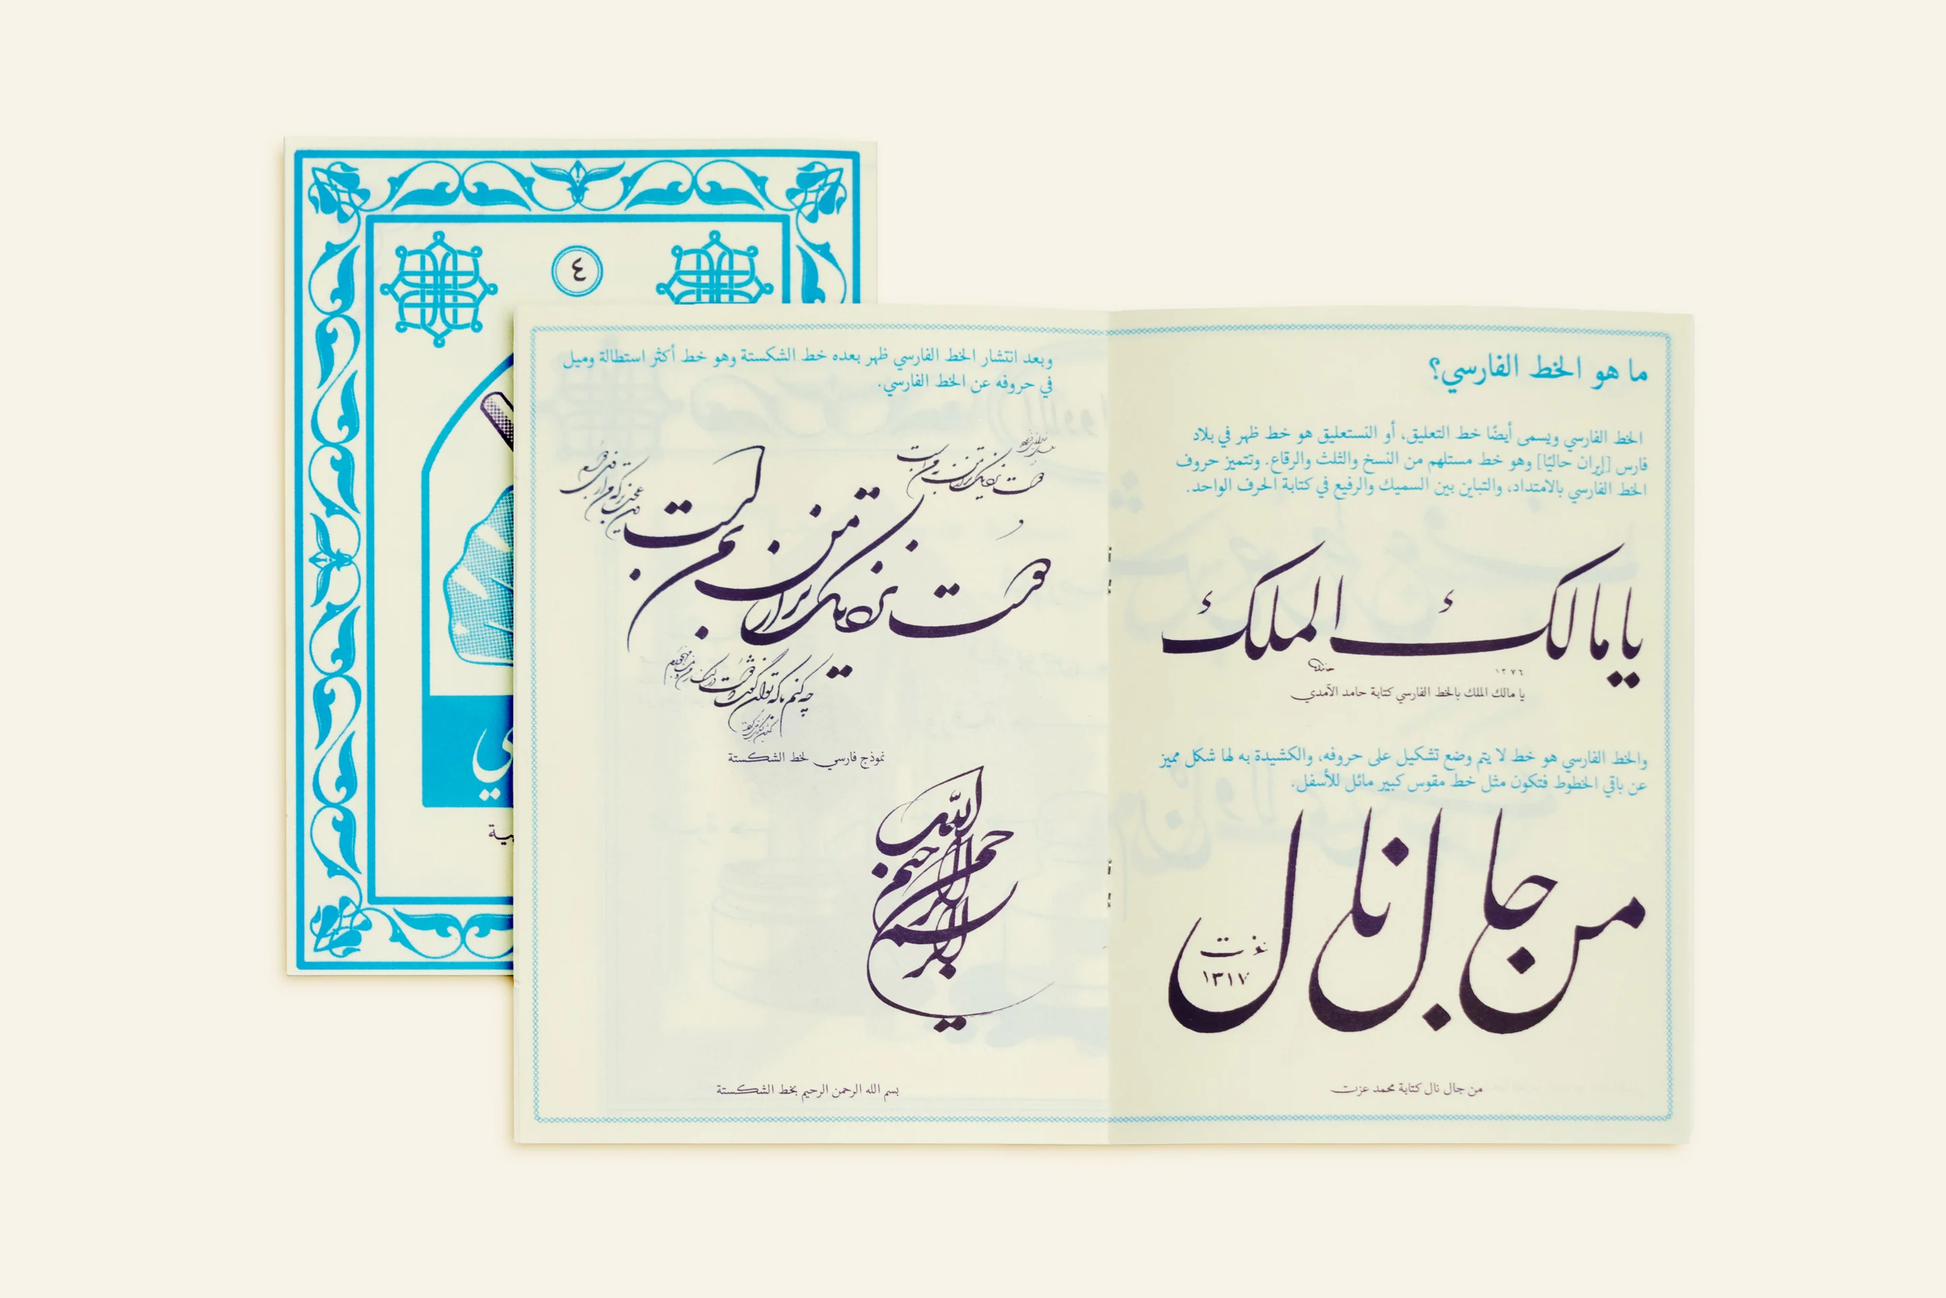 ٤
ما هو الخط الفارسي؟
الخط الفارسي ويسمى أيضًا خط التعليق، أو النستعليق هو خط ظهر في بلاد
فارس [إيران حاليًا] وهو خط مستلهم من النسخ والثلث والرقاع. وتتميز حروف
الخط الفارسي بالامتداد، والتباين بين السميك والرفيع في كتابة الحرف الواحد.
يا مالك الملك
حامد ١٣٧٦
يا مالك الملك بالخط الفارسي كتابة حامد الآمدي
والخط الفارسي هو خط لا يتم وضع تشكيل على حروفه، والكشيدة به لها شكل مميز
عن باقي الخطوط فتكون مثل خط مقوس كبير مائل للأسفل.
من جال نال
عزت
١٣١٧
من جال نال كتابة محمد عزت
وبعد انتشار الخط الفارسي ظهر بعده خط الشكستة وهو خط أكثر استطالة وميل
في حروفه عن الخط الفارسي.
دوست نزدیکتر از من بمن است
نموذج فارسي لخط الشكستة
بسم الله الرحمن الرحيم
بسم الله الرحمن الرحيم بخط الشكستة